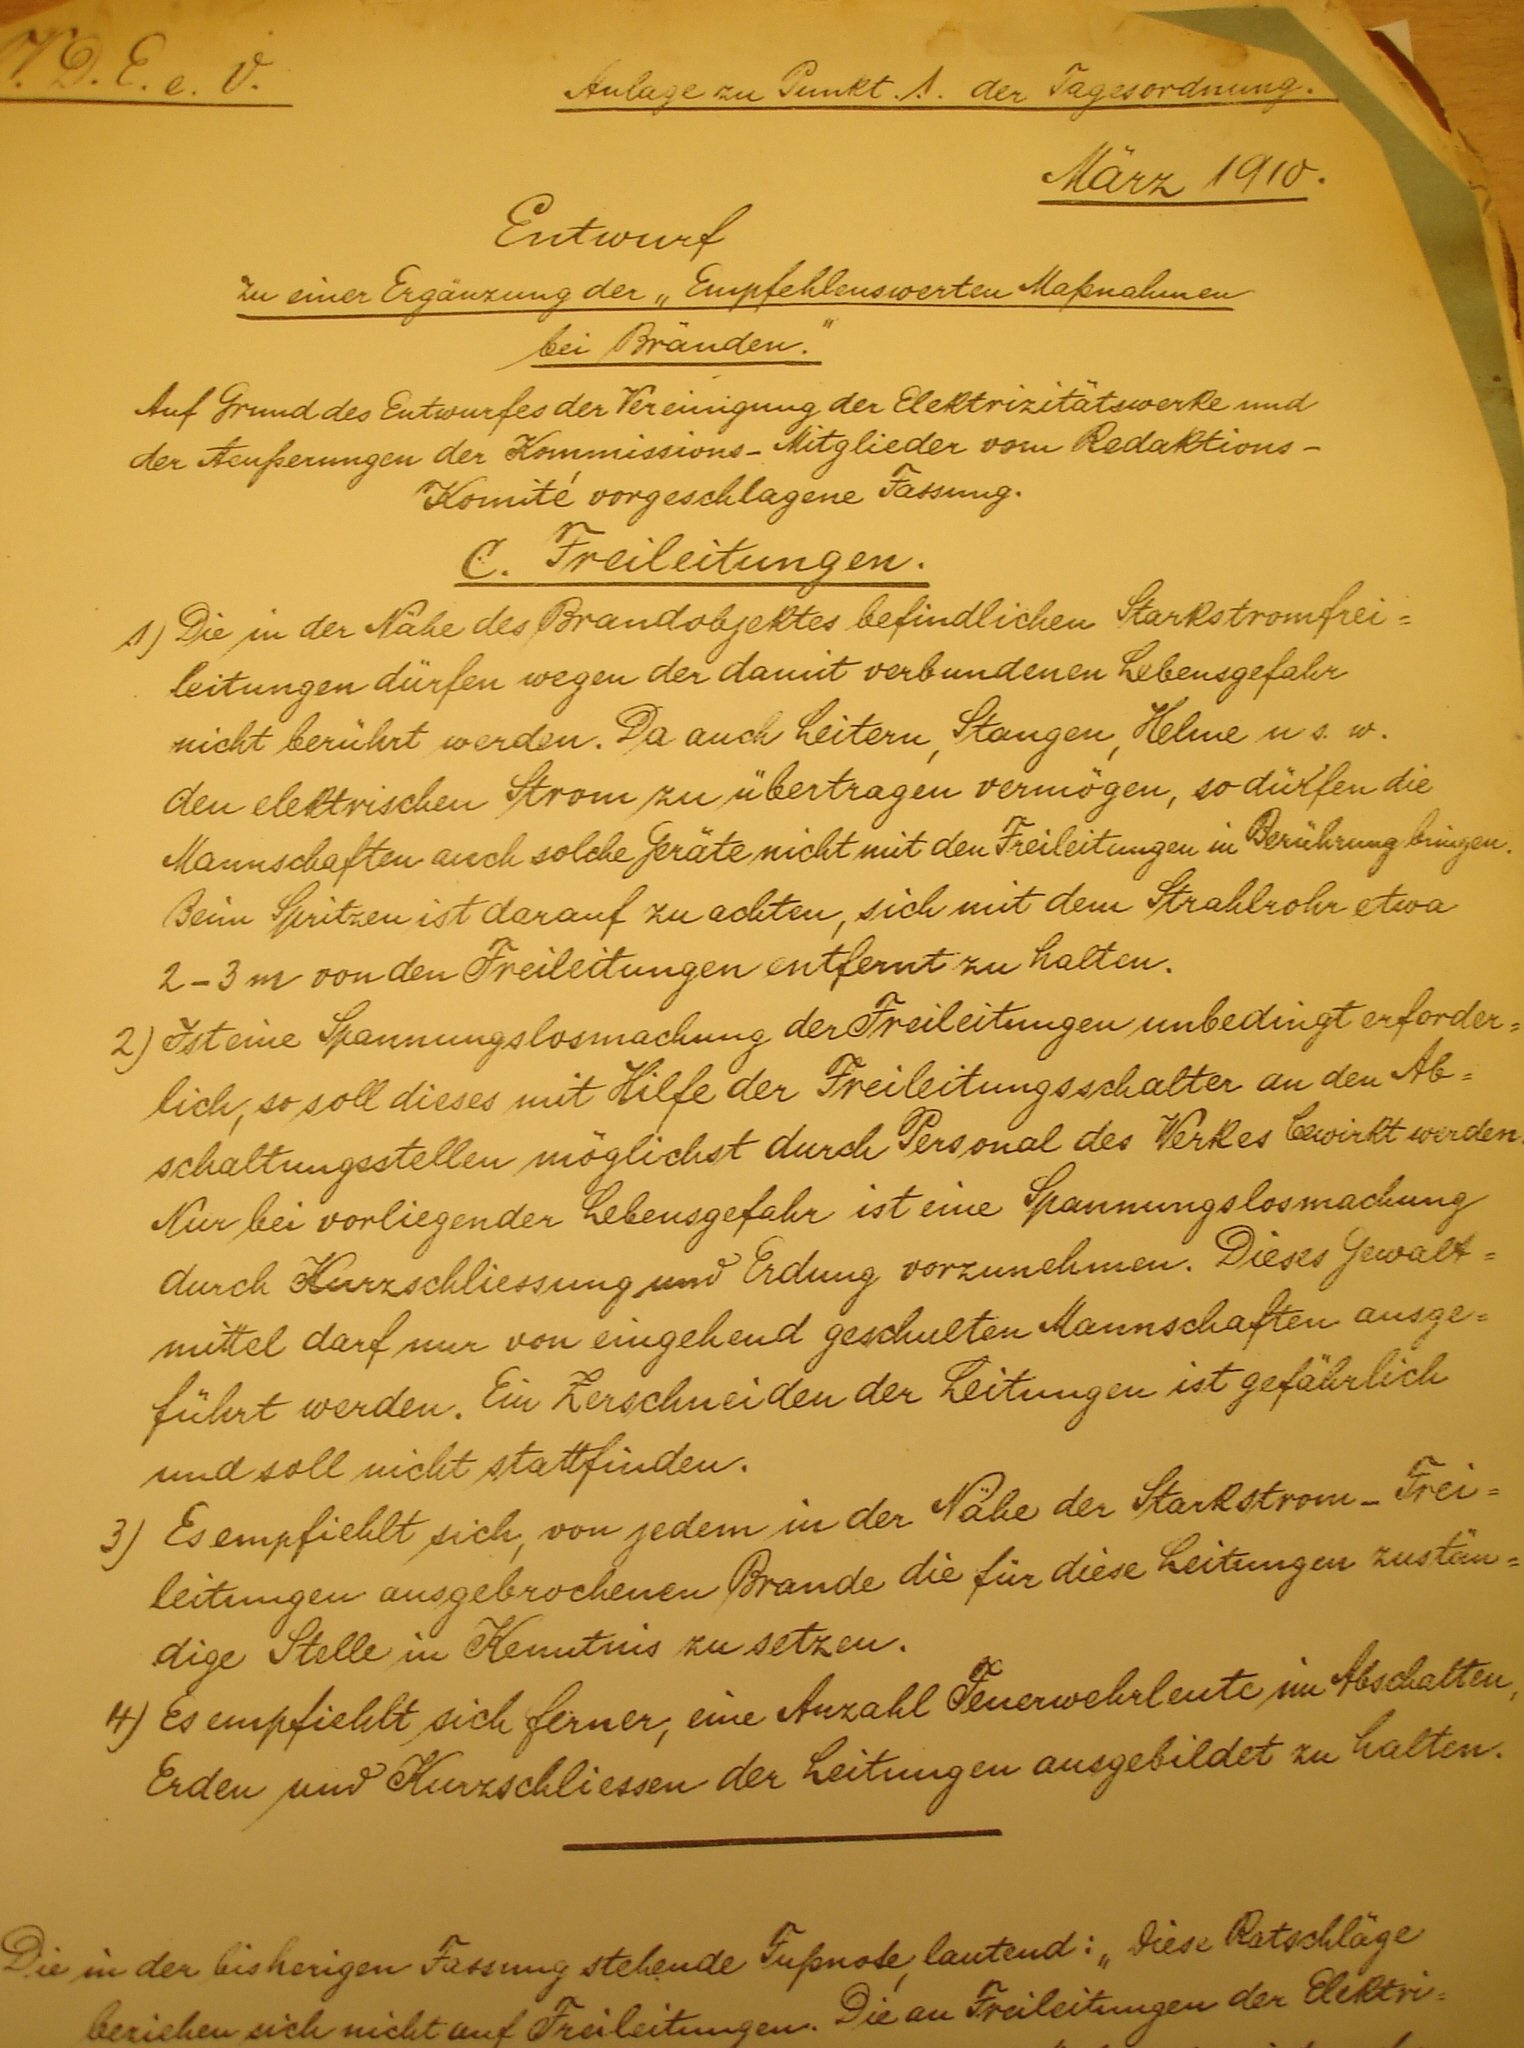 V. D. E. e. V.
Anlage zu Punkt. 1. der Tagesordnung.
März 1910.
Entwurf
zu einer Ergänzung der „Empfehlenswerten Maßnahmen
bei Bränden.“
Auf Grund des Entwurfes der Vereinigung der Elektrizitätswerke und
der Aeußerungen der Kommissions-Mitglieder vom Redaktions-
Komité vorgeschlagene Fassung.
C. Freileitungen.
1) Die in der Nähe des Brandobjektes befindlichen Starkstromfrei=
leitungen dürfen wegen der damit verbundenen Lebensgefahr
nicht berührt werden. Da auch Leitern, Stangen, Helme u s. w.
den elektrischen Strom zu übertragen vermögen, so dürfen die
Mannschaften auch solche Geräte nicht mit den Freileitungen in Berührung bringen.
Beim Spritzen ist darauf zu achten, sich mit dem Strahlrohr etwa
2-3 m von den Freileitungen entfernt zu halten.
2) Ist eine Spannungslosmachung der Freileitungen unbedingt erforder=
lich, so soll dieses mit Hilfe der Freileitungsschalter an den Ab=
schaltungsstellen möglichst durch Personal des Werkes bewirkt werden.
Nur bei vorliegender Lebensgefahr ist eine Spannungslosmachung
durch Kurzschliessung und Erdung vorzunehmen. Dieses Gewalt=
mittel darf nur von eingehend geschulten Mannschaften ausge=
führt werden. Ein Zerschneiden der Leitungen ist gefährlich
und soll nicht stattfinden.
3) Es empfiehlt sich, von jedem in der Nähe der Starkstrom-Frei=
leitungen ausgebrochenen Brande die für diese Leitungen zustän=
dige Stelle in Kenntnis zu setzen.
4) Es empfiehlt sich ferner, eine Anzahl Feuerwehrleute im Abschalten,
Erden und Kurzschliessen der Leitungen ausgebildet zu halten.
Die in der bisherigen Fassung stehende Fußnote, lautend: „Diese Ratschläge
beziehen sich nicht auf Freileitungen. Die an Freileitungen der Elektri=